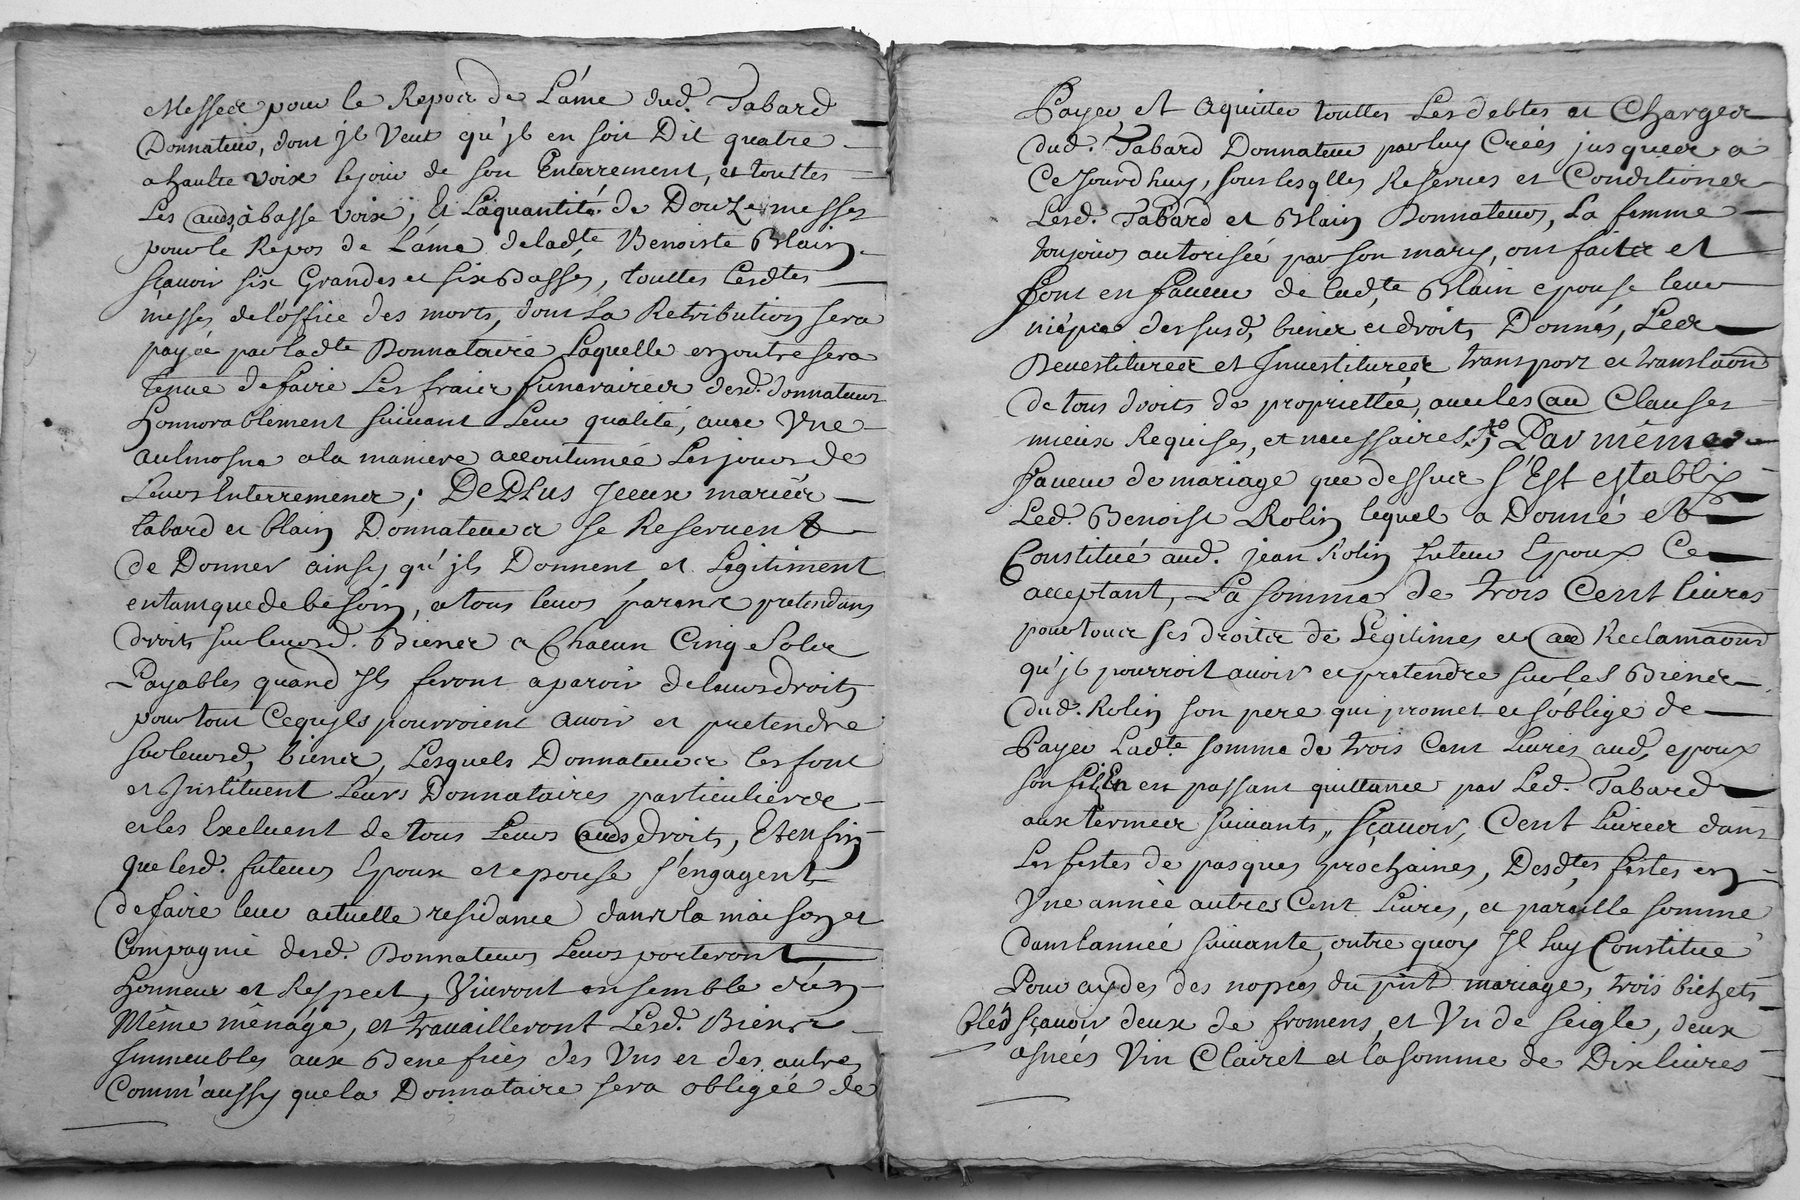 Messes pour le Repos de L'áme dud. Tabard
Donnateur, dont Jl Veut qu'jl en soit Dit quatre
a haulte voix le jour de son Enterrement, et touttes
Les aud.s à basse voix, Et La quantité de Douze messes
pour le Repos de L'áme de lad.te Benoiste Blain
sçavoir six Grandes et six Basses, touttes lesd.tes
messes de l'office des morts, dont La Retribution sera
payée par lad.te Donnataire Laquelle en outre sera
tenue de faire Les fraies funeraires desd. donnateurs
Honnorablement suivant Leur qualité, avec Vne
aulmosne a la maniere accoutumée Les jours de
Leurs Enterremens; De Plus Jceux mariés
tabard et blain Donnateurs se Reservent
de Donner ainsy qu'jls Donnent et Legitiment
en tant que de besoin, a tous leurs parens pretendans
droits sur leursd. Biens a Chacun Cinq Sols
Payables quand Jls feront aparoir de leurs droits
pour tout Ce qu'jls pourroient avoir et pretendre
sur leursd. biens, Lesquels Donnateurs les font
et Jnstituent Leurs Donnataires particuliers
et les Excluent de tous Leurs aud.s droits, Et enfin
que lesd. futeurs Epoux et epouse s'engagent
de faire leur actuelle residance dans la maison et
Compagnie desd. Donnateurs Leurs porteront
Honneur et Respect, Vivront ensemble d'un
Même ménage, et travailleront Lesd. Biens
Jmmeubles aux Benefices des Vns et des autres
Comm'aussy que la Donnataire sera obligée de
Payer et aquitter touttes Les debtes et Charges
dud. Tabard Donnateur par luy Creés jusques a
Ce Jourd huy, sous lesqlles Reserves et Conditions
Lesd. Tabard et Blain Donnateurs, La femme
toujours autorisée par son mary, ont faits et
font en faveur de lad.te Blain epouse leur
niépce des susd. biens et droits Donnés, Les
Devestitures et Jnvestitures transport et translaõns
de tous droits de propriettée, avec les au Clauses
mieux Requises, et necessaires; Par même
faveur de mariage que dessus s'Est establi
Led. Benoist Rolin lequel a Donné et
Constitué aud. jean Rolin futeur Epoux Ce
acceptant, La somme de trois Cent livres
pour tous ses droits de Legitimes et au Reclamaõns
qu'jl pourroit avoir et pretendre sur les Biens
dud. Rolin son pere qui promet et s'oblige de
Payer Lad.te somme de trois Cent Livres aud. epoux
son fils En en passant quittance par Led. Tabard
aux termes suivants, sçavoir, Cent Livres dans
Les festes de pasques prochaines, Desd.tes festes en
Vne année autres Cent Livres, et pareille somme
dans l'année suivante, outre quoy Jl luy Constitue
Pour aydes des nopces du pnt mariage, trois bichets
bléd sçavoir deux de fromens et Vn de seigle, deux
asnées Vin Clairet et la somme de Dix livres